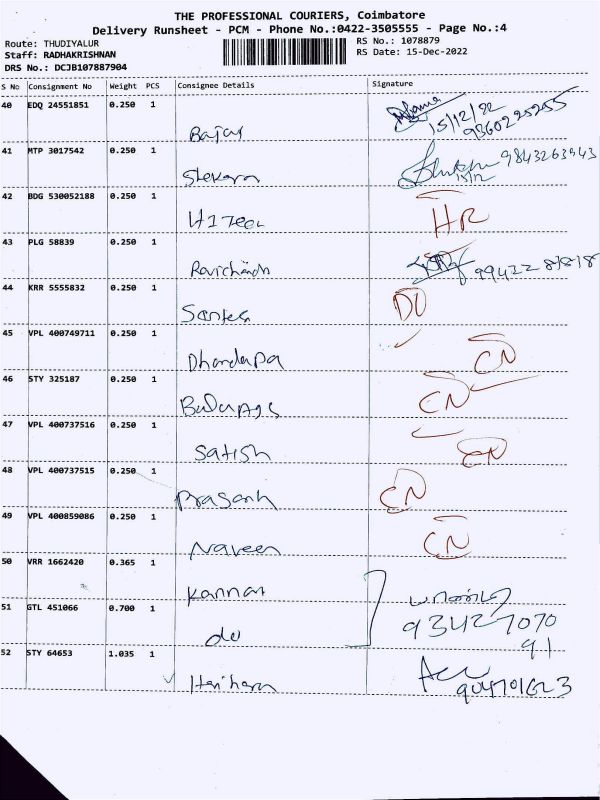 THE PROFESSIONAL COURIERS, Coimbatore
Delivery Runsheet - PCM - Phone No.:0422-3505555 - Page No.:4
Route: THUDIYALUR
RS No.: 1078879
Staff: RADHAKRISHNAN
RS Date: 15-Dec-2022
DRS No.: DCJB107887904
S No Consignment No Weight PCS Consignee Details Signature
40 EDQ 24551851 0.250 1
15/12/22
41 MTP 3017542 0.250 1
9843263943
42 BDG 530052188 0.250 1
HR
43 PLG 58839 0.250 1
44 KRR 5555832 0.250 1
45 VPL 400749711 0.250 1
Dhandapa CN
46 STY 325187 0.250 1
CN
47 VPL 400737516 0.250 1
Satish CN
48 VPL 400737515 0.250 1
Prasanh CN
49 VPL 400859086 0.250 1
Naveen CN
50 VRR 1662420 0.365 1
Kannan
51 GTL 451066 0.700 1
do 93427070
91
52 STY 64653 1.035 1
Harihara